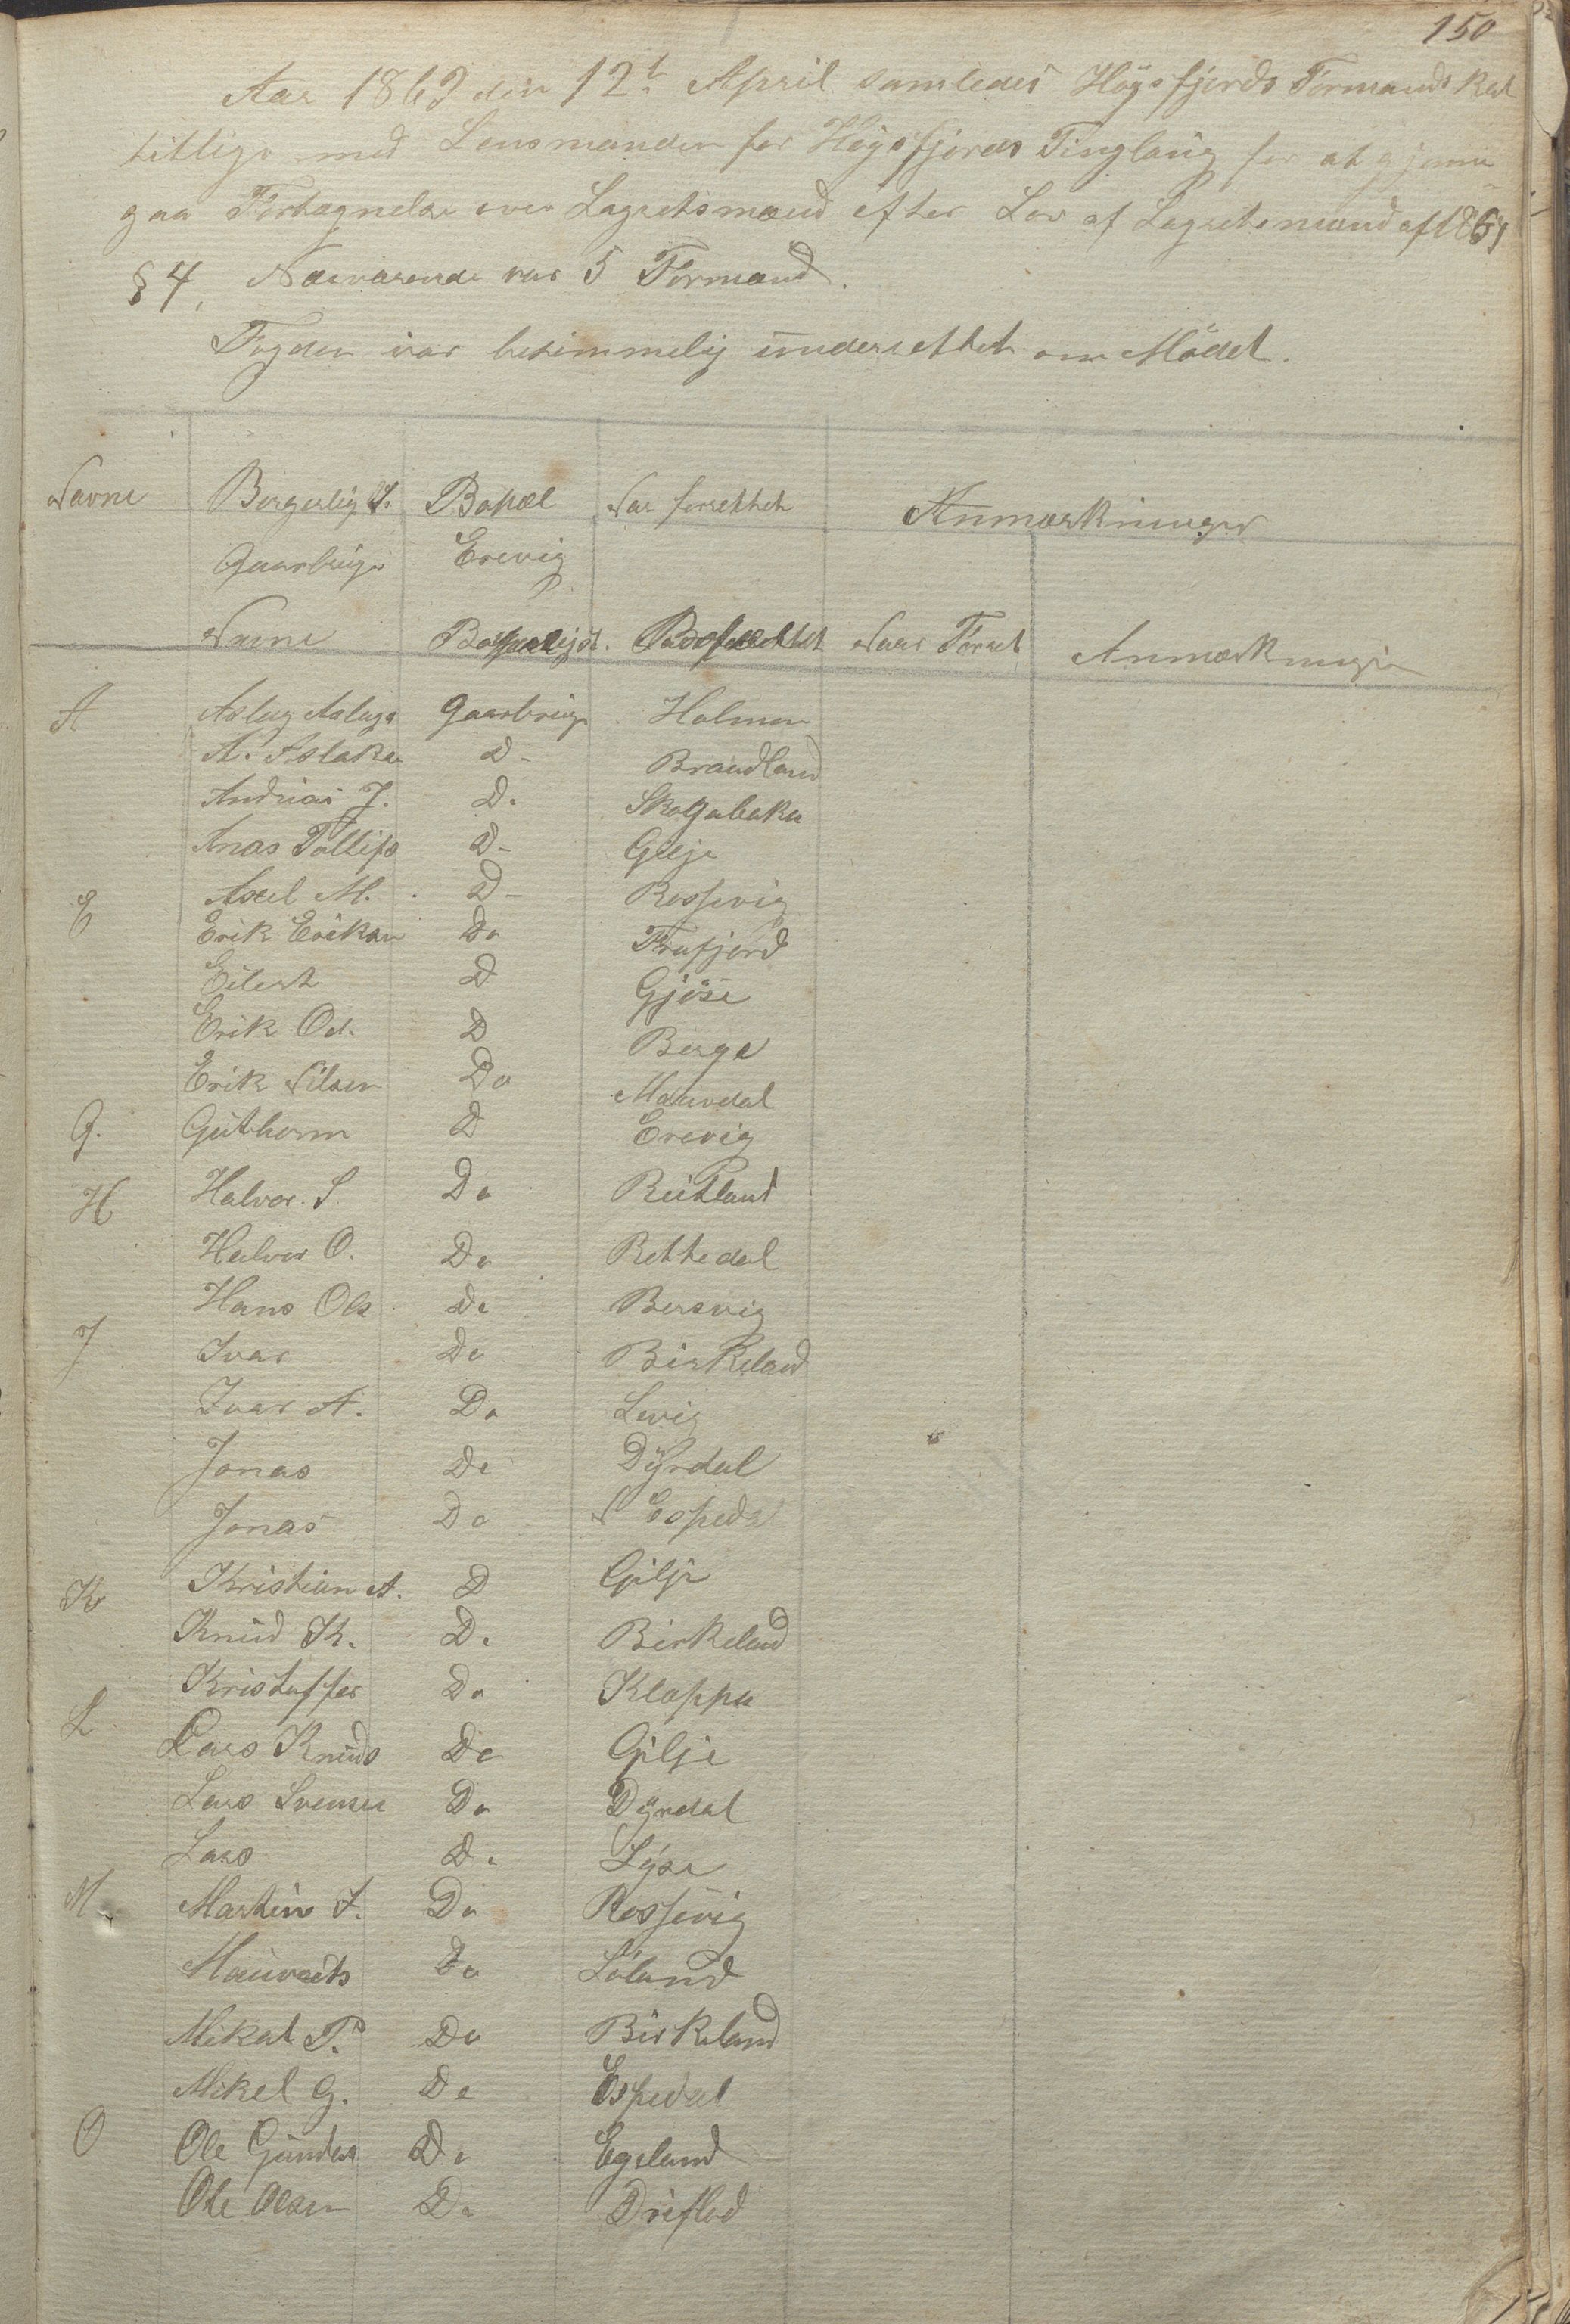 150
Aar 1862 den 12t April samledes Høgsfjords Formandskab
tilligemed Lensmanden for Høgsfjords Tinglaug for at gjenem
gaa Fortegnelse over Lagretsmænd efter Lov af Lagretsmænd af 1861
§ 4, Nærværende var 5 Formænd.
Fogden var betimmelig underrettet om Mödet.
Navne Borgerlig S. Bopæl Naar forrettet Anmærkninger
Gaarbruger Erevig
Navne Naar Forret Anmærkninger
A Aslag Aslags Gaarbruger Holmen
A. Aslaksen D- Brandland
Andrias J. D. Skogabaka
Anas Tollifs D- Gilje
Axel M. D- Rossevig
E Erik Eriksen Do Frafjord
Eilert D Gjöse
Erik Od. D Berge
Erik Nilsen Do Maundal
G. Guthorm D Erevig
H Halvor. S. Do Rutland
Halvor O. Do Rettedal
Hans Ols Do Bersvig
J Ivar Do Birkeland
Ivar A. Do Levig
Jonas Do Dÿrdal
Jonas Do N Espeda
K Kristian A. D Gilje
Knud K. D. Birkeland
Kristoffer Do Kloppa
L Lars Knuds Do Gilje
Lars Svensen Do Dÿrdal
Lars Do Lÿse
M. Martin T. Do Rossevig
Mauvrits Do Söland
Mikal T. Do Birkeland
Mikel G. Do Espedal
O Ole Gunders Do Egeland
Ole Olsen Do Driflod